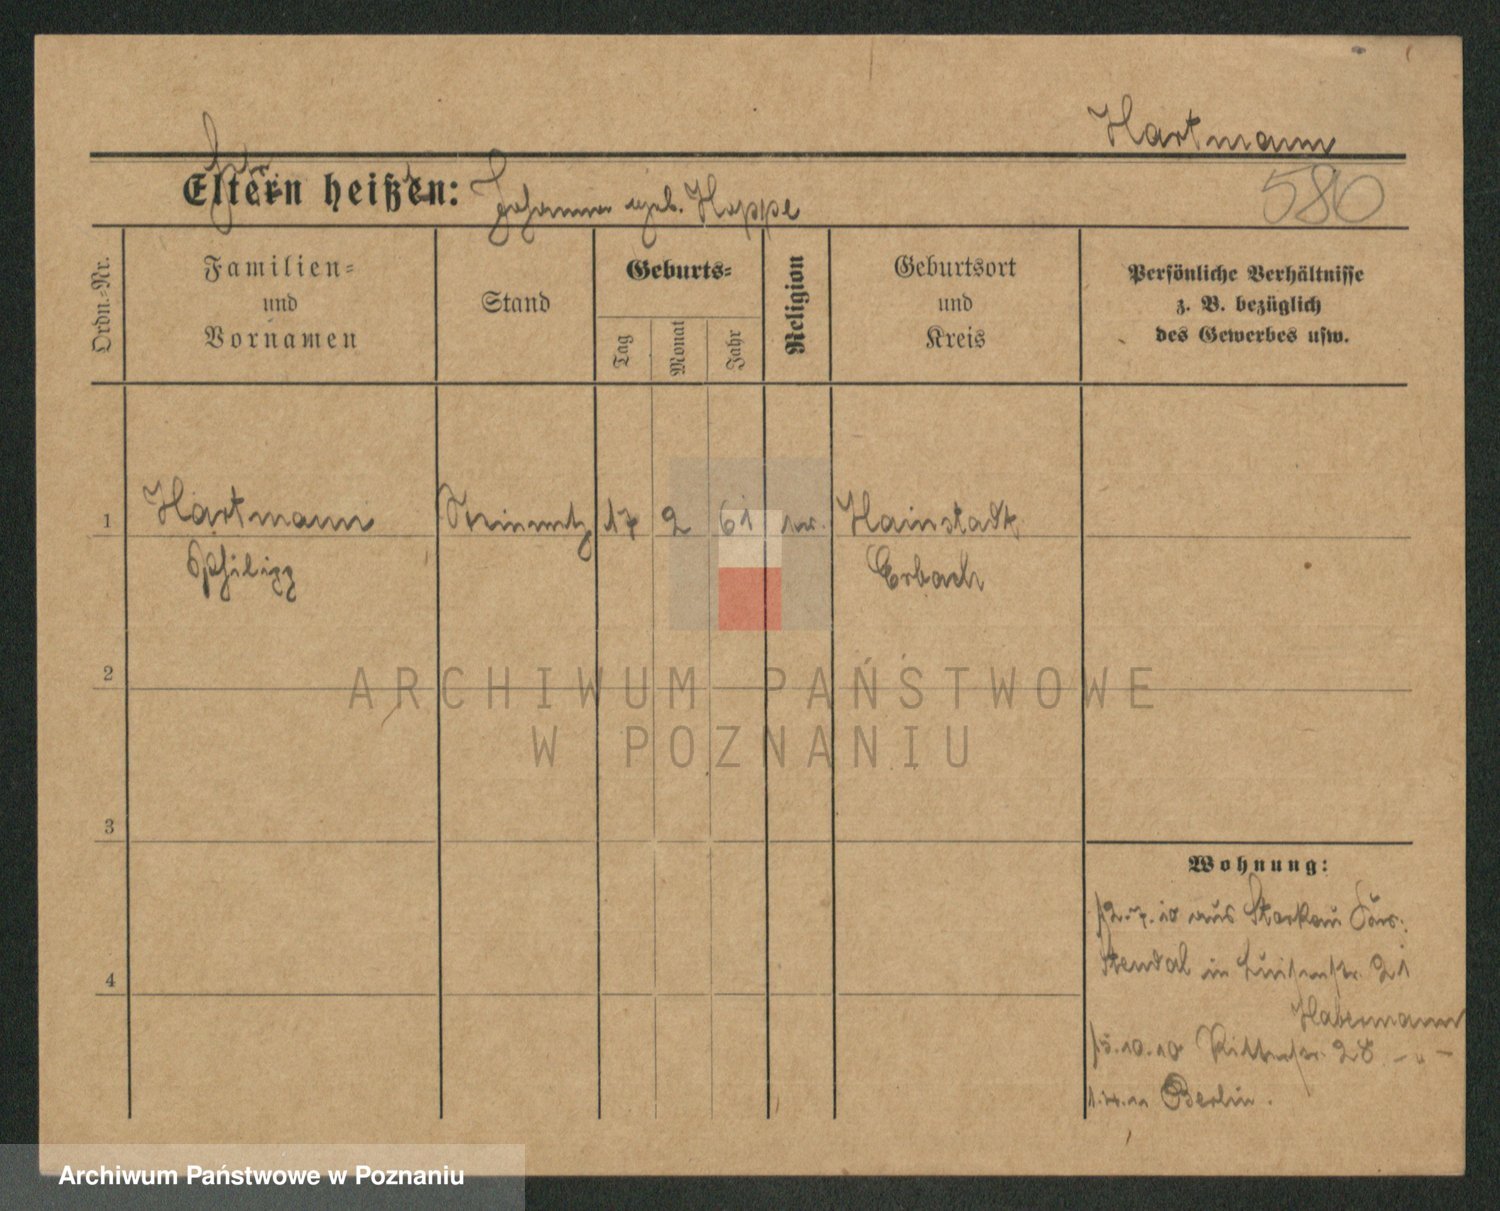 Hartmann
Eltern heißen: Johanna geb. Hoppe
580
Ordn.-Nr.
Familien-
und
Vornamen
Stand
Geburts-
Tag
Monat
Jahr
Religion
Geburtsort
und
Kreis
Persönliche Verhältnisse
z. B. bezüglich
des Gewerbes usw.
1 Hartmann Steinmetz 17 2 61 Hainstadt
Philipp Erbach
2
ARCHIWUM PAŃSTWOWE
W POZNANIU
3
Wohnung:
12.7.10 aus Storkau
Stendal in Luisenstr. 21
4
Habermann
15.10.10 Ritterstr. 28 - " -
Berlin.
Archiwum Państwowe w Poznaniu